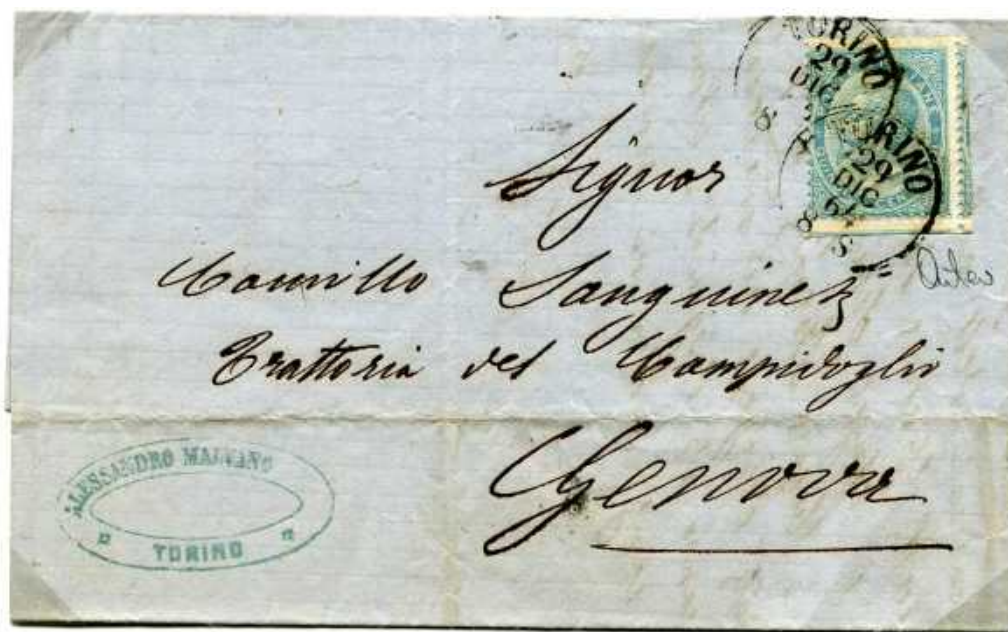 TORINO
29
DIC
TORINO
29
DIC
64
8 S
Signor
Camillo Sanguinetz
Trattoria del Campidoglio
Genova
ALESSANDRO MALVANO
TORINO